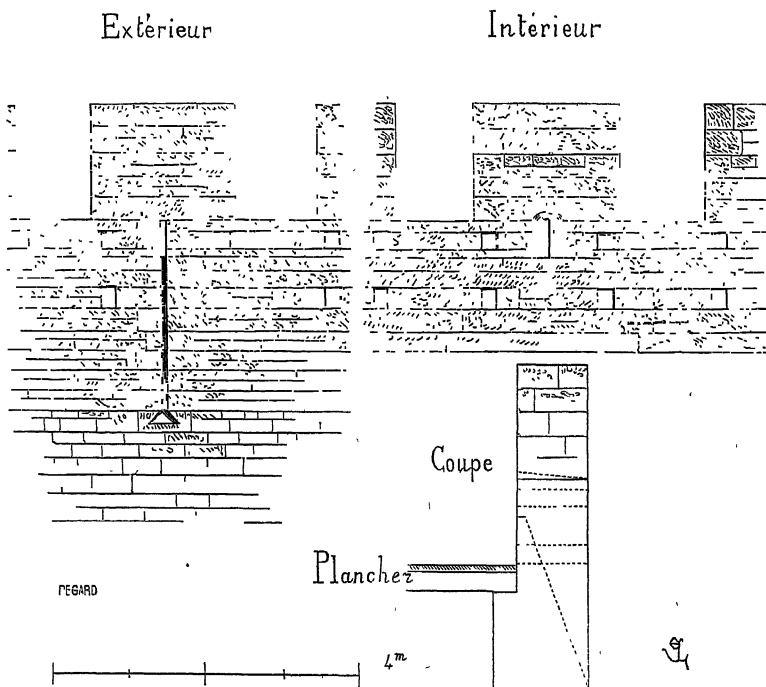 Extérieur
Intérieur
Coupe
Plancher
PEGARD
4m